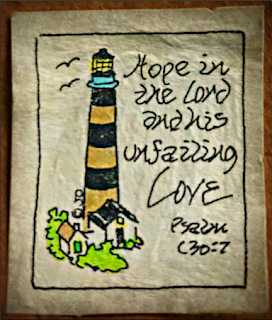 Hope in
the Lord
and his
unfailing
LOVE
Psalm
130:7
©JD